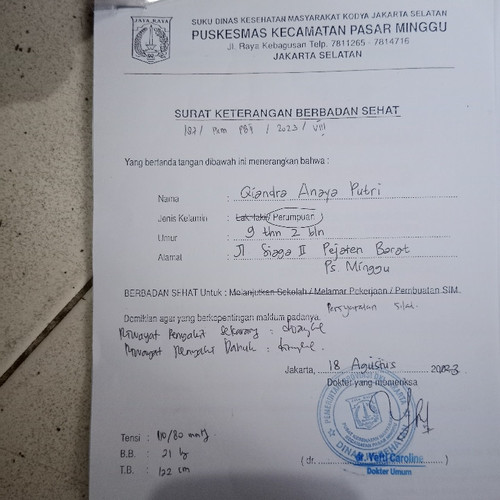 JAYA RAYA
SUKU DINAS KESEHATAN MASYARAKAT KODYA JAKARTA SELATAN
PUSKESMAS KECAMATAN PASAR MINGGU
Jl. Raya Kebagusan Telp. 7811265 - 7814716
JAKARTA SELATAN
SURAT KETERANGAN BERBADAN SEHAT
187 / / 2023 / VIII
Yang bertanda tangan dibawah ini menerangkan bahwa :
Nama : Qiandra Anaya Putri
Jenis Kelamin : Laki-laki / Perumpuan
Umur : 9 thn 2 bln
Alamat : Jl Siaga II Pejaten Barat
Ps. Minggu
BERBADAN SEHAT Untuk : Melanjutkan Sekolah / Melamar Pekerjaan / Pembuatan SIM.
Persyaratan Silat.
Demikian agar yang berkepentingan maklum padanya.
Riwayat Penyakit Sekarang :
Riwayat Penyakit Dahulu :
Jakarta, 18 Agustus 2023
Dokter yang memeriksa
Tensi : 110/80 mmHg
B.B. : 21 kg
T.B. : 122 cm
(dr. dr. Vefti Caroline )
Dokter Umum